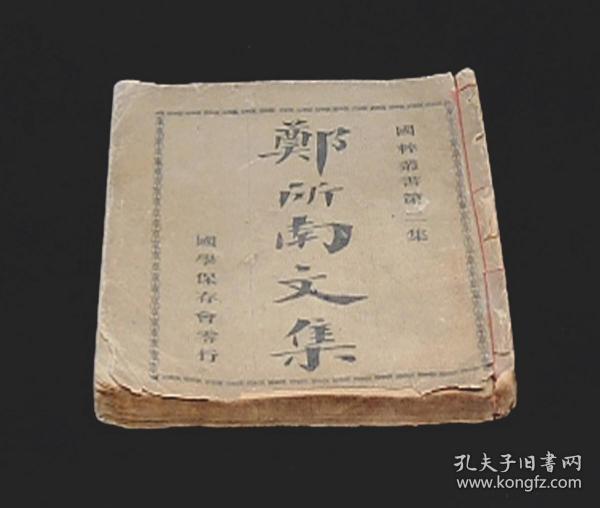 國粹叢書第二集
鄭所南文集
國學保存會零行
孔夫子旧書网
www.kongfz.com